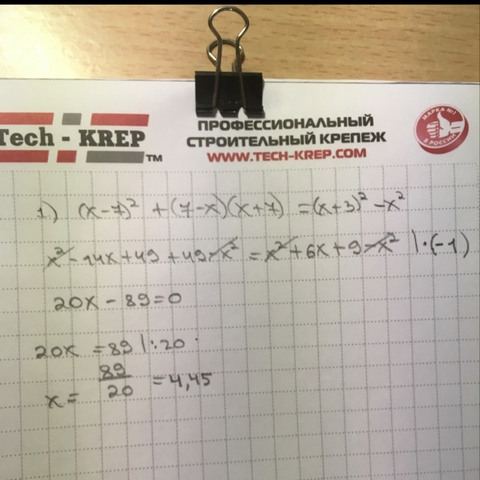 Tech - KREP™
ПРОФЕССИОНАЛЬНЫЙ
СТРОИТЕЛЬНЫЙ КРЕПЕЖ
WWW.TECH-KREP.COM
МАРКА №1
В РОССИИ
1.) (x-7)² + (7-x)(x+7) = (x+3)² - x²
x² - 14x + 49 + 49 - x² = x² + 6x + 9 - x² | · (-1)
20x - 89 = 0
20x = 89 | : 20
x = 89/20 = 4,45